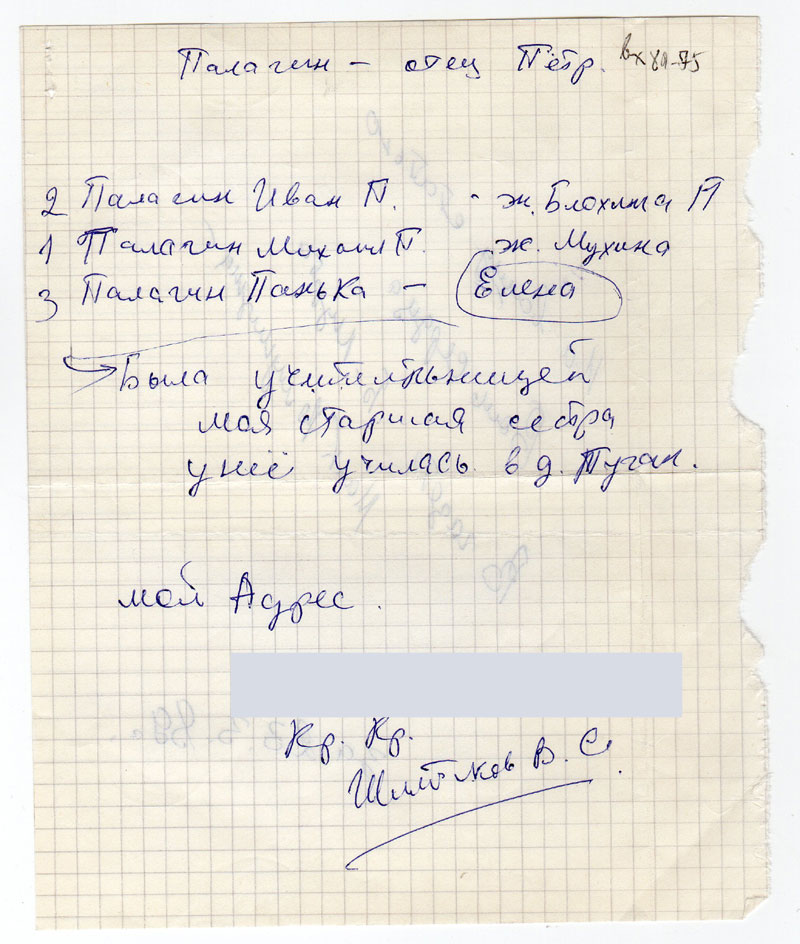 Палагин – отец Пётр. вх 89-75
2 Палагин Иван П. - ж. Блохина П
1 Палагин Михаил П. ж. Мухина
3 Палагин Панька – Елена
Была учительницей
моя старшая сестра
у неё училась в д. Пугач.
мой Адрес.
Кр. Кр.
В. С.